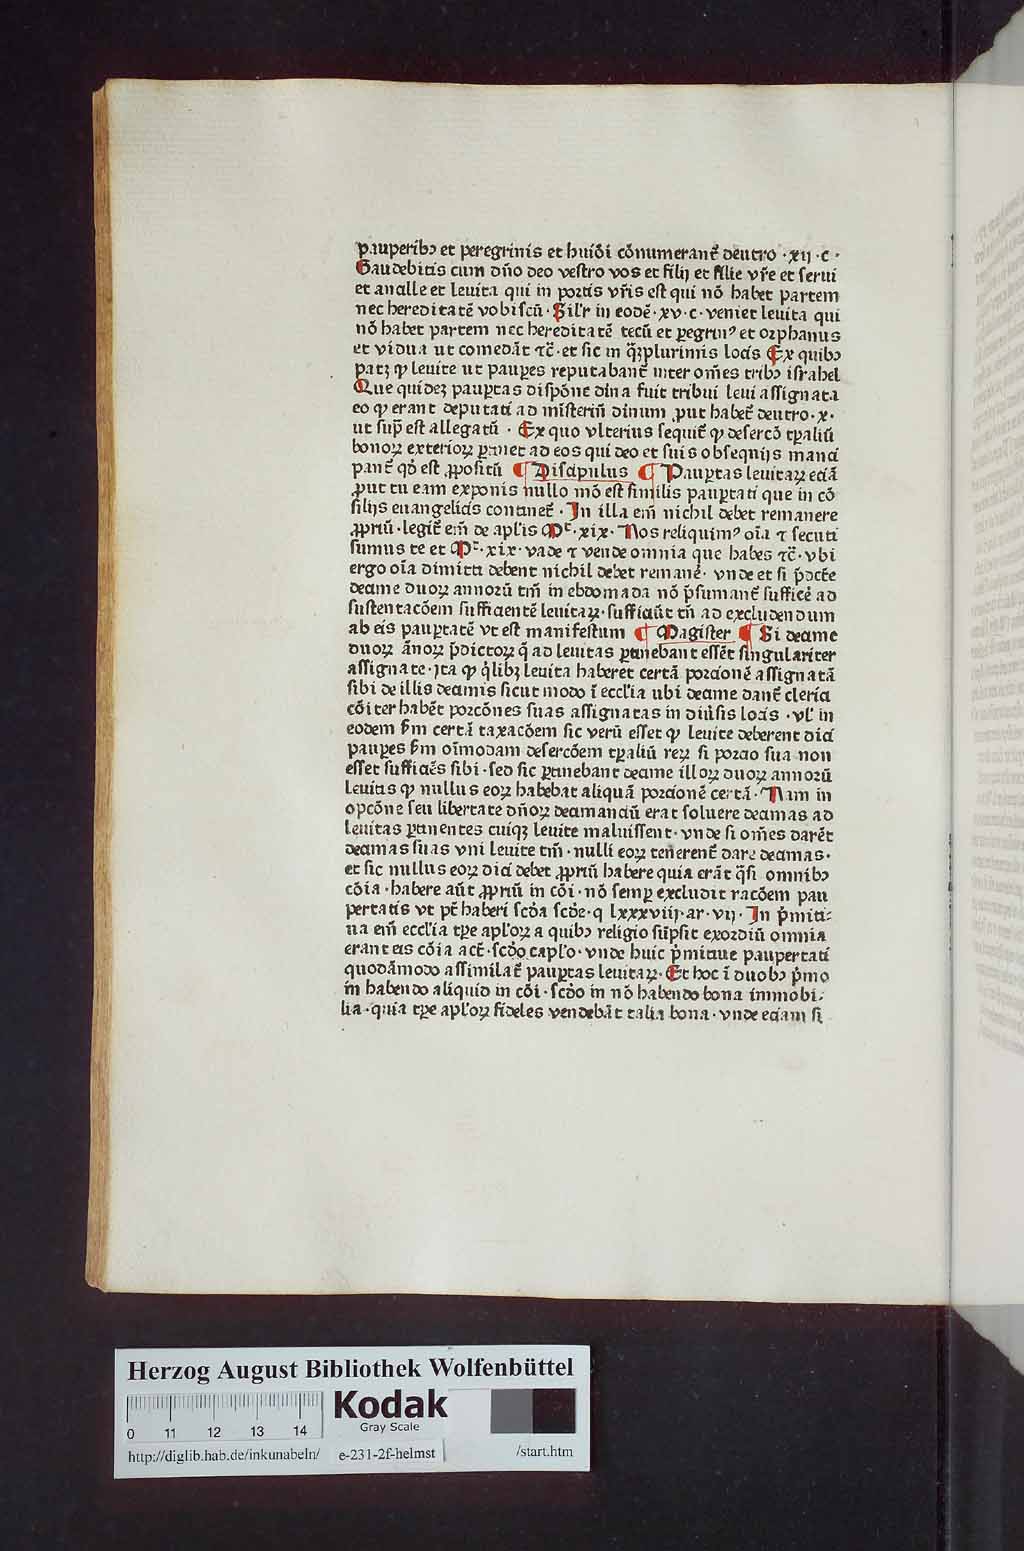 pauperibꝫ et peregrinis et huiꝰi cõnumerant᷑ deutro ·xij·c·
Gaudebitis cum dño deo vestro vos et filij et filie vr̃e et serui
et ancille et leuita qui in portis vr̃is est qui nõ habet partem
nec hereditatẽ vobiscũ· Sil'r in eodẽ·xv·c·veniet leuita qui
nõ habet partem nec hereditatẽ tecũ et ꝑegrinꝰ et orphanus
et vidua ut comedãt ⁊c̃·et sic in q̃ꝫplurimis locis Ex quibꝫ
patꝫ ꝙ leuite ut pauꝑes reputabant᷑ inter om̃es tribꝫ israhel
Que quideꝫ pauꝑtas dispõne diĩna fuit tribui leui assignata
eo ꝙ erant deputati ad mĩsteriũ diĩnum ꝓut habet᷑ deutro·x·
ut sup̃ est allegatũ · Ex quo vlterius sequit᷑ ꝙ desercõ tꝑaliũ
bonoꝝ exterioꝝ ꝑtinet ad eos qui deo et suis obsequijs manci
pant᷑ qd̃ est ꝓpositũ ¶ Discipulus ¶ Pauꝑtas leuitaꝝ eciã
ꝓut tu eam exponis nullo mõ est similis pauꝑtati que in cõ
silijs euangelicis continet᷑· In illa em̃ nichil debet remanere
ꝓpriũ·legit᷑ em̃ de apl̃is Mᵗ·xix· Nos reliquimꝰ oĩa ⁊ secuti
sumus te et Mᵗ·xix·vade ⁊ vende omnia que habes ⁊c̃·vbi
ergo oĩa dimitti debent nichil debet remanẽ· vnde et si p̃dcẽ
decime duoꝝ annorũ tm̃ in ebdomada nõ p̃sumant᷑ sufficẽ ad
sustentacõem sufficientẽ leuitaꝝ·sufficiũt tñ ad excludendum
ab eis pauꝑtatẽ vt est manifestum ¶ Magister ¶ Si decime
duoꝝ ãnoꝝ p̃dictoꝝ q̃ ad leuitas ꝑtinebant essẽt singulariter
assignate·ita ꝙ q̃libꝫ leuita haberet certã porcionẽ assignatã
sibi de illis decimis sicut modo ĩ eccl'ia ubi decime dant᷑ clerici
cõiter habẽt porcõnes suas assignatas in diũsis locis ·vl' in
eodem ẜm certã taxacõem sic verũ esset ꝙ leuite deberent dici
pauꝑes ẜm oĩmodam desercõem tꝑaliũ reꝝ si porcio sua non
esset sufficiẽs sibi·sed sic ꝑtinebant decime illoꝝ duoꝝ annorũ
leuitis ꝙ nullus eoꝝ habebat aliquã porcionẽ certã· Nam in
opcõne seu libertate dñoꝝ decimanciũ erat soluere decimas ad
leuitas ꝑtinentes cuiqꝫ leuite maluissent·vnde si om̃es darẽt
decimas suas vni leuite tm̃·nulli eoꝝ tenerent᷑ dare decimas·
et sic nullus eoꝝ dici debet ꝓpriũ habere quia erãt q̃si omnibꝫ
cõia·habere aũt ꝓpriũ in cõi·nõ semꝑ excludit racõem pau
pertatis vt pt᷑ haberi scd̃a scd̃e·q lxxxviij·ar·vij· In p̃miti:
ua em̃ eccl'ia tꝑe apl'oꝝ a quibꝫ religio sũpsit exordiũ omnia
erant eis cõia act᷑·scd̃o capl'o·vnde huic p̃mitiue paupertati
quodãmodo assimilat᷑ pauꝑtas leuitaꝝ· Et hoc ĩ duobꝫ p̃mo
in habendo aliquid in cõi·scd̃o in nõ habendo bona immobi:
lia·quia tꝑe apl'oꝝ fideles vendebãt talia bona·vnde eciam si
Herzog August Bibliothek Wolfenbüttel
0 11 12 13 14
Kodak
Gray Scale
http://diglib.hab.de/inkunabeln/ e-231-2f-helmst /start.htm